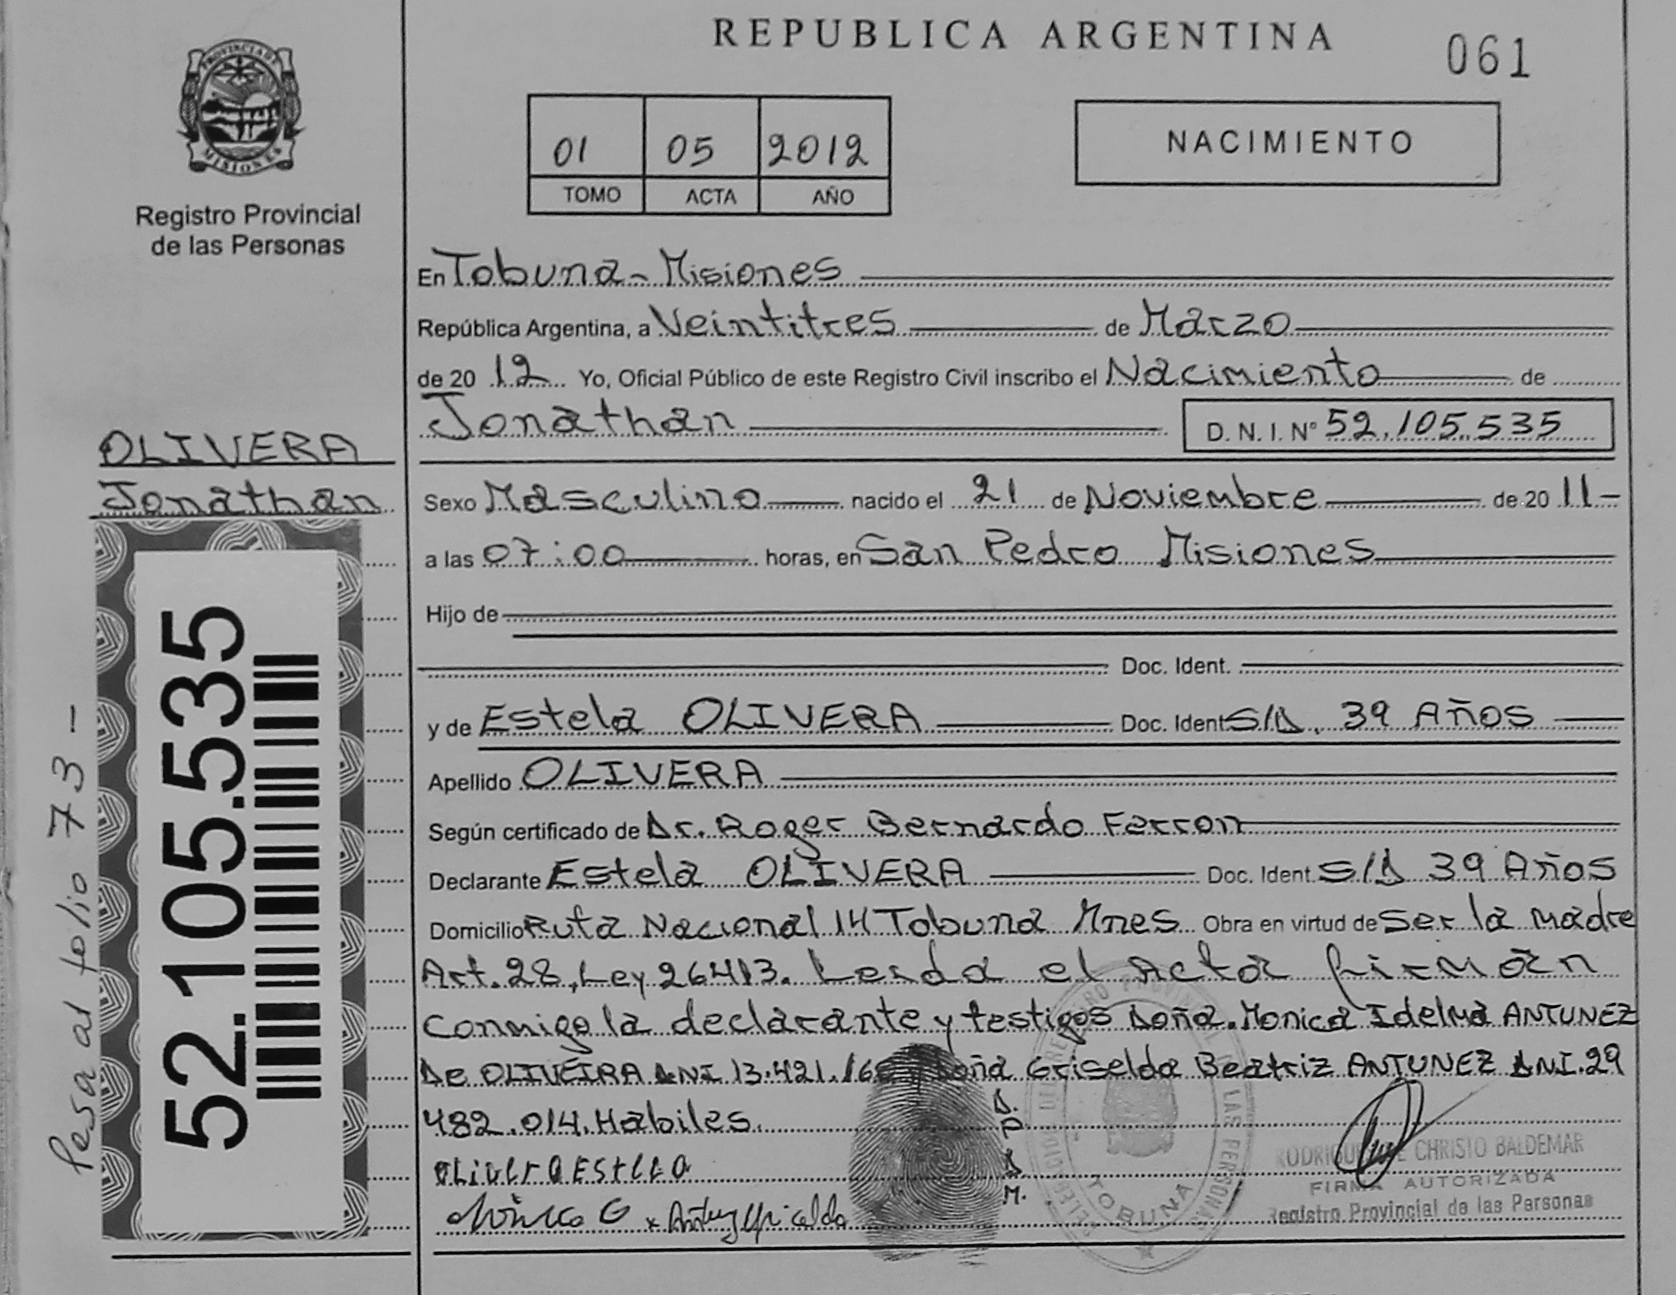 REPUBLICA ARGENTINA
061
PROVINCIA DE
MISIONES
Registro Provincial
de las Personas
01 05 2012
TOMO ACTA AÑO
NACIMIENTO
En Tobuna - Misiones
República Argentina, a Veintitres de Marzo
de 20 12 Yo, Oficial Público de este Registro Civil inscribo el Nacimiento de
Jonathan D. N. I. Nº 52.105.535
OLIVERA
Jonathan
Sexo Masculino nacido el 21 de Noviembre de 20 11-
a las 07:00 horas, en San Pedro Misiones
Hijo de
Doc. Ident.
y de Estela OLIVERA Doc. Ident S/D. 39 Años
Apellido OLIVERA
Según certificado de Dr. Roger Bernardo Ferron
Declarante Estela OLIVERA Doc. Ident. S/D 39 Años
Domicilio Ruta Nacional 14 Tobuna Mnes. Obra en virtud de ser la madre
Art. 28, Ley 26413. Leida el Acta firman
Conmigo la declarante y testigos Doña. Monica Idelma ANTUNEZ
De OLIVEIRA DNI 13.421.166 y Doña Griselda Beatriz ANTUNEZ DNI. 29
482.014. Habiles.
OLIVERA ESTELA
D.
P.
D.
M.
TOBUNA
CHRISTO BALDEMAR
FIRMA AUTORIZADA
Registro Provincial de las Personas
52.105.535
Pasa al folio 73-